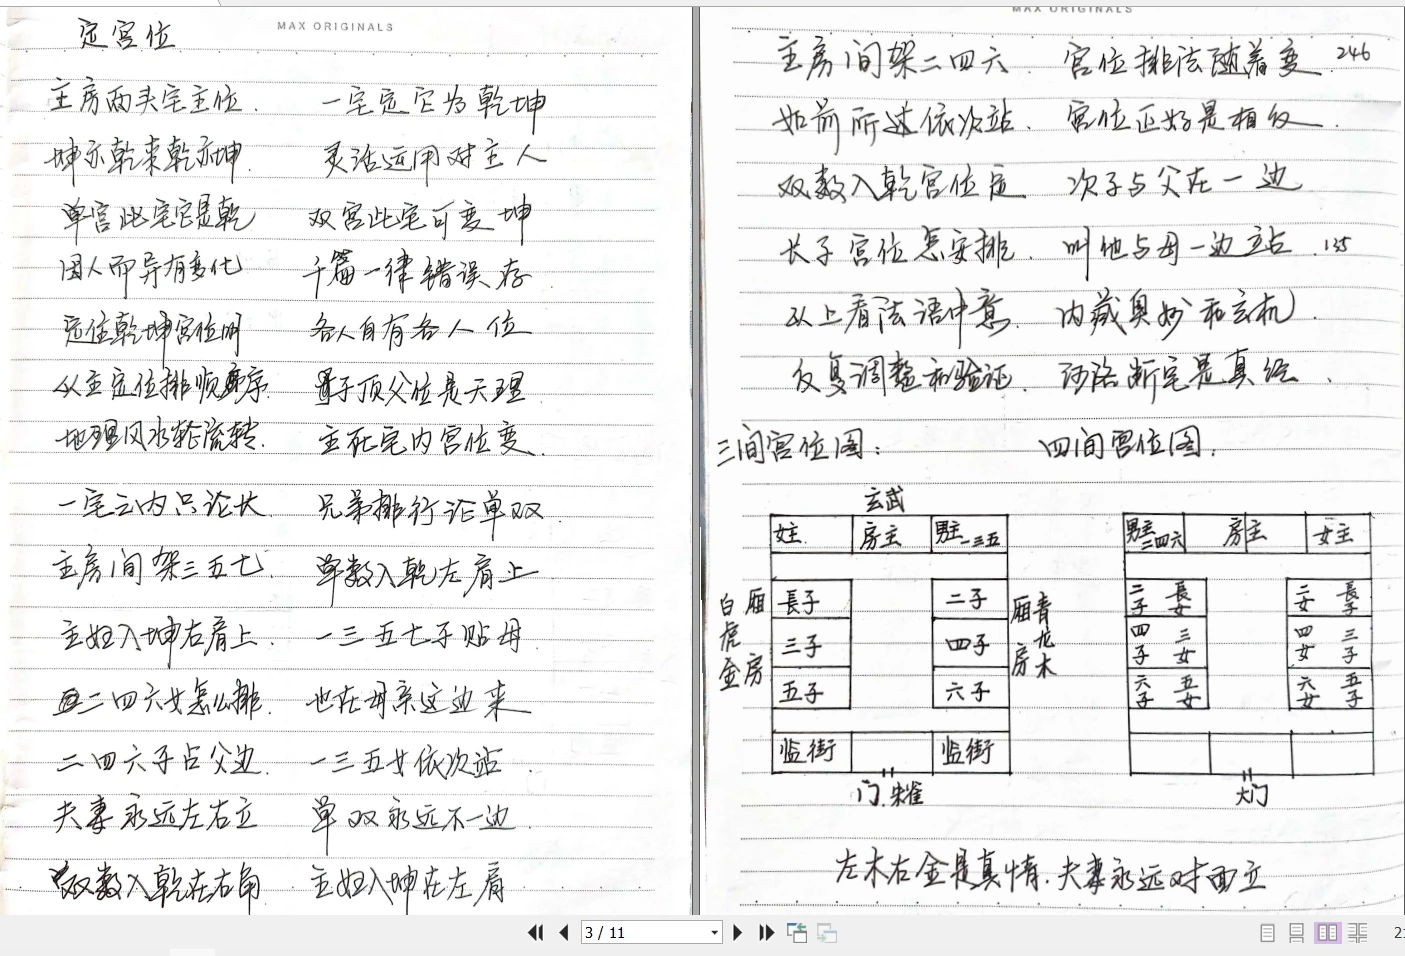 MAX ORIGINALS
定宫位
主房两头定主位. 一宅定它为乾坤
坤亦乾来乾亦坤. 灵活运用对主人
单宫此宅它是乾 双宫此宅可变坤
因人而异有变化 千篇一律错误存.
定住乾坤宫位明 各人自有各人位
从主定位排顺序. 子顶父位是天理.
地理风水轮流转. 主死宅内宫位变.
一宅之内只论长. 兄弟排行论单双.
主房间架三五七. 单数入乾左肩上
主妇入坤右肩上. 一三五七子贴母.
二四六女怎么排. 也在母亲这边来
二四六子占父边. 一三五女依次站.
夫妻永远左右立 单双永远不一边.
双数入乾在右角 主妇入坤在左肩
MAX ORIGINALS
主房间架二四六. 宫位排法随着变. 246
如前所述依次站. 宫位正好是相反.
双数入乾宫位定 次子占父在一边
长子宫位怎安排. 叫他与母一边站. 135
以上看法语中意. 内藏奥妙和玄机.
反复调整和验证. 断宅是真经.
三间宫位图: 四间宫位图.
玄武
女主. 房主 男主一三五
男主二四六 房主 女主
白虎金 厢房 長子 二子 厢房 青龙木
三子 四子
五子 六子
二子 長女 二女 長子
四子 三女 四女 三子
六子 五女 六女 五子
监街 监街
门.朱雀 大门
左木右金是真情.夫妻永远对面立
3 / 11